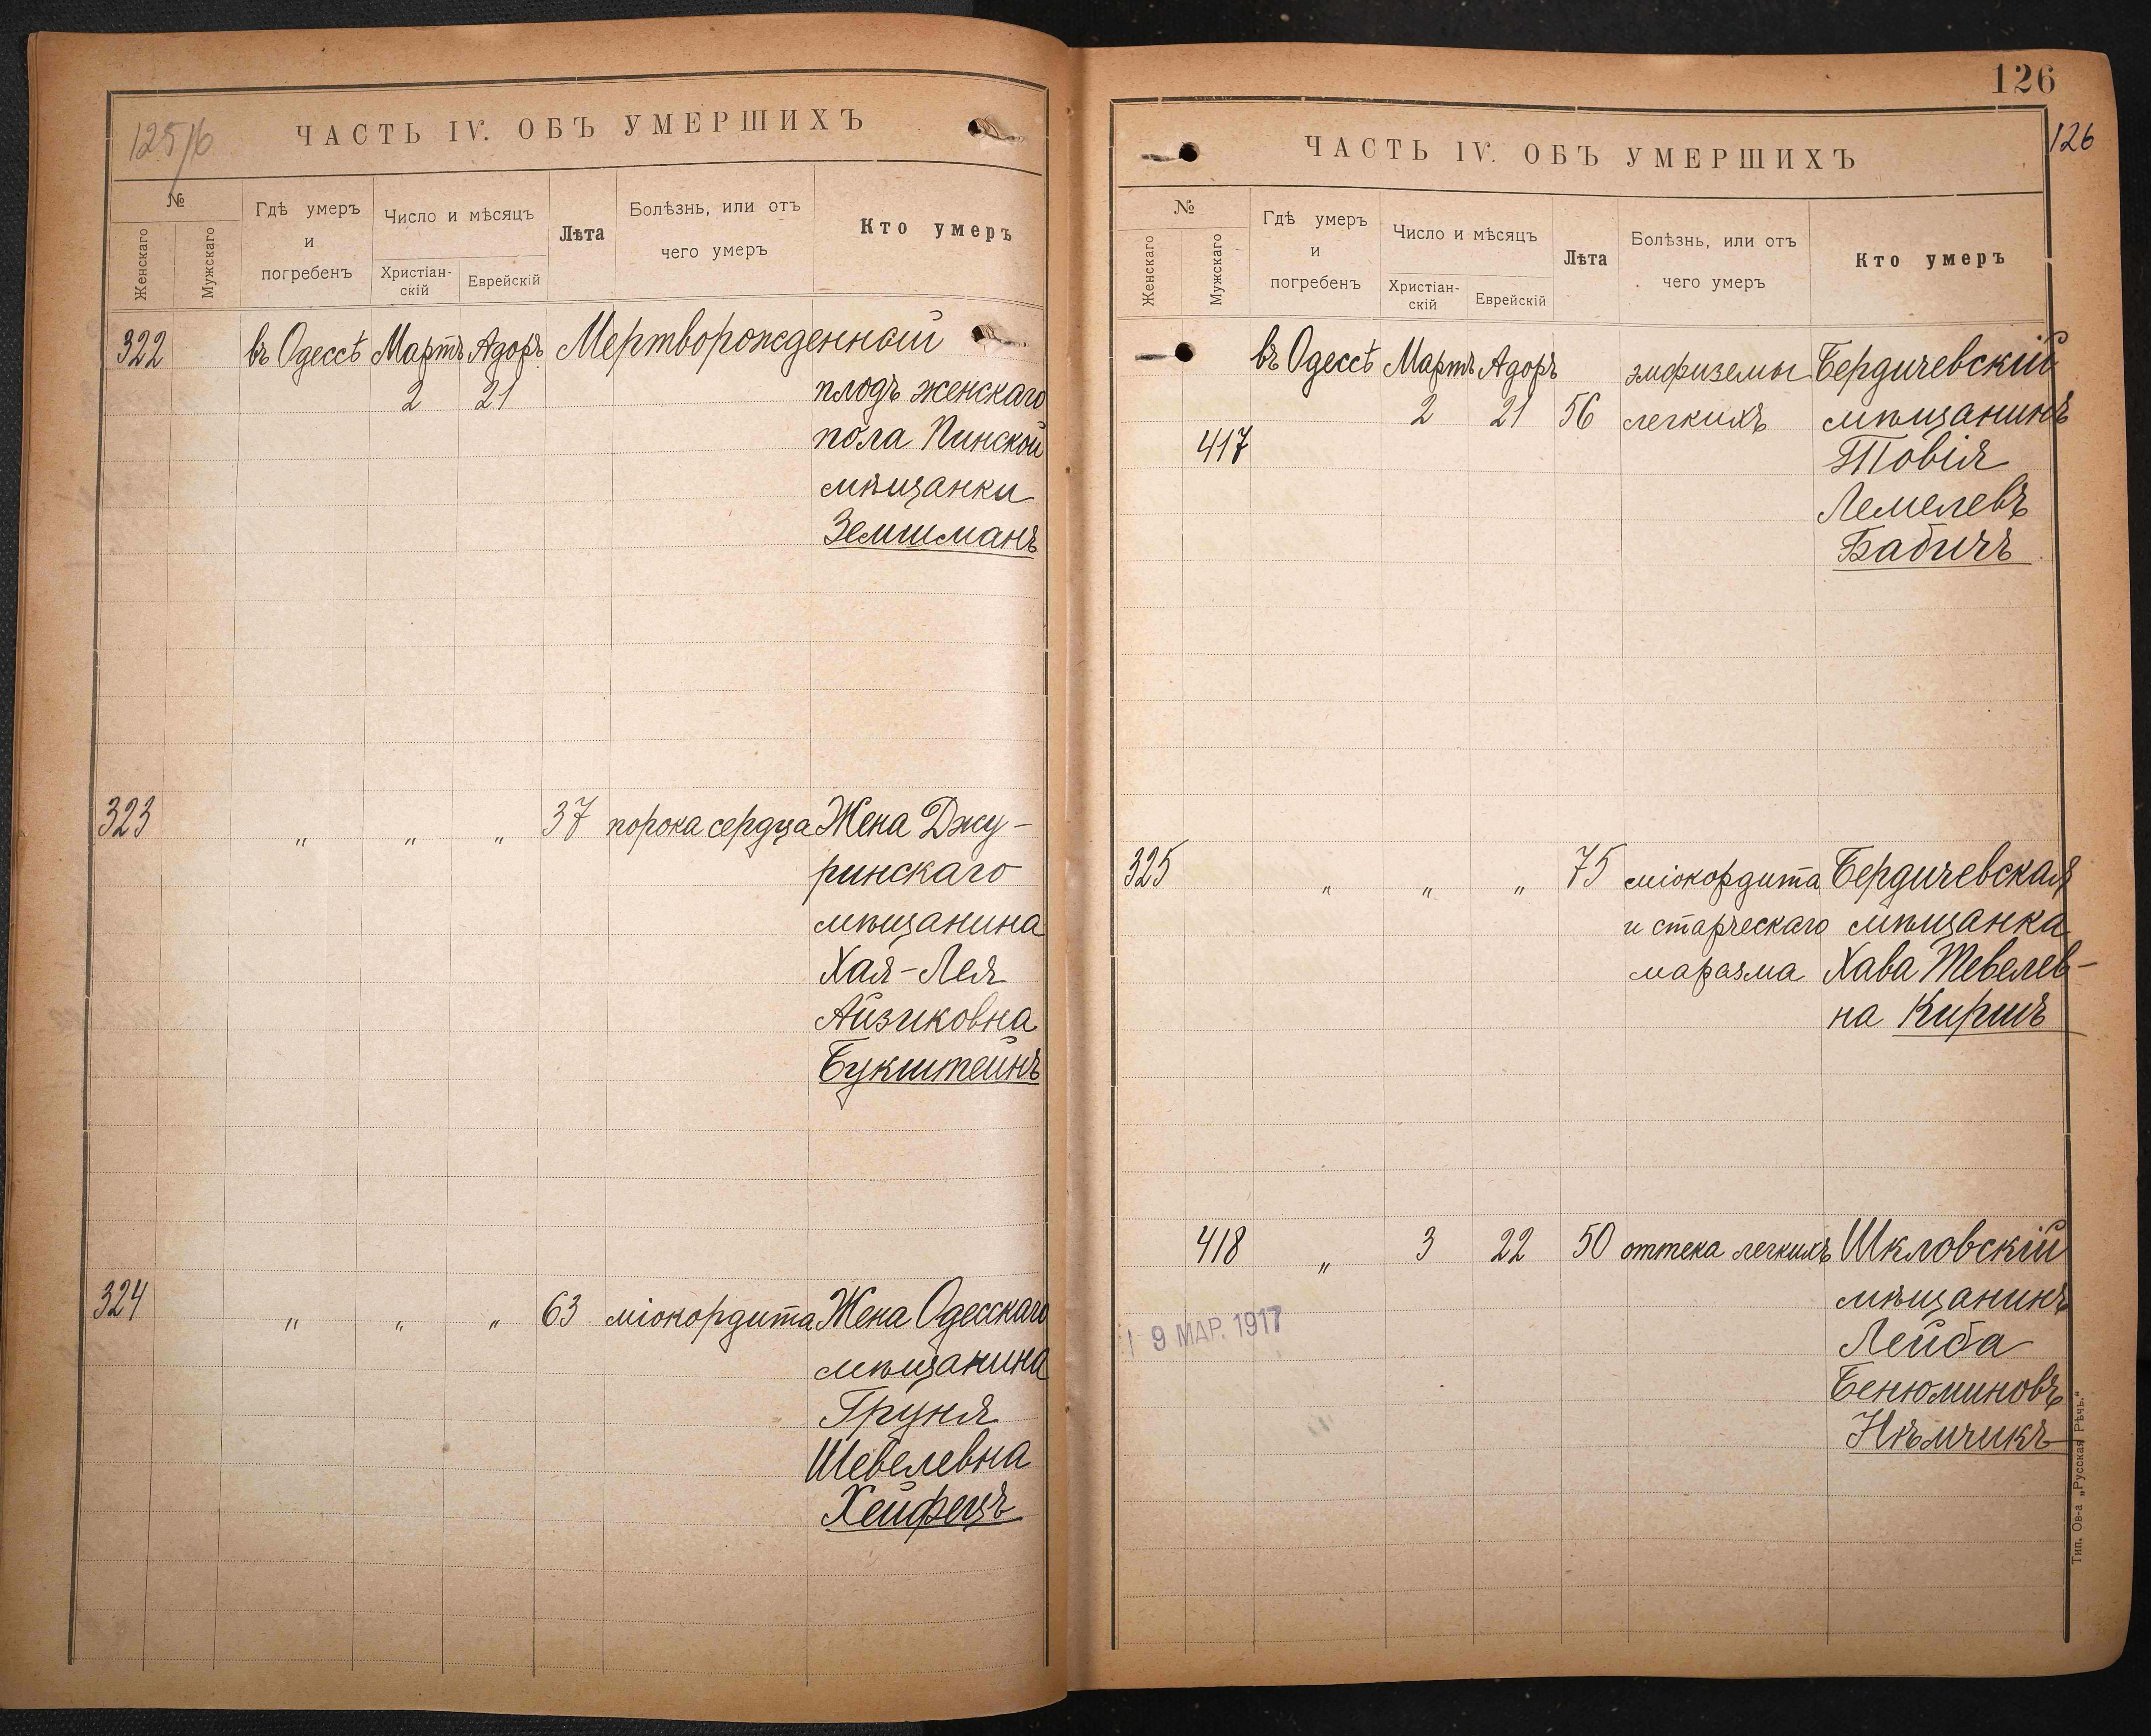 125/6
ЧАСТЬ IV. ОБЪ УМЕРШИХЪ
№
Женскаго
Мужскаго
Гдѣ умеръ
и
погребенъ
Число и мѣсяцъ
Христіан-
скій
Еврейскій
Лѣта
Болѣзнь, или отъ
чего умеръ
Кто умеръ
322 въ Одессѣ Мартъ Адоръ Мертворожденный
2 21 плодъ женскаго
пола Пинской
мѣщанки
Землманъ
323 " " " 37 порока сердца Жена Джу-
ринскаго
мѣщанина
Хая-Лея
Айзиковна
Букштейнъ
324 " " " 63 міокордита Жена Одесскаго
мѣщанина
Груня
Шевелевна
Хейфецъ
126
126
ЧАСТЬ IV. ОБЪ УМЕРШИХЪ
№
Женскаго
Мужскаго
Гдѣ умеръ
и
погребенъ
Число и мѣсяцъ
Христіан-
скій
Еврейскій
Лѣта
Болѣзнь, или отъ
чего умеръ
Кто умеръ
въ Одессѣ Мартъ Адоръ эмфиземы Бердичевскій
2 21 56 легкихъ мѣщанинъ
417 Товія
Лемелевъ
Бабичъ
325 " " " 75 міокордита Бердичевская
и старческаго мѣщанка
маразма Хава Тевелев-
на Киршъ
418 " 3 22 50 оттека легкихъ Шкловскій
мѣщанинъ
9 МАР. 1917
Лейба
Бенюминовъ
Нѣмчикъ
Тип. Ов-а „Русская Рѣчь."